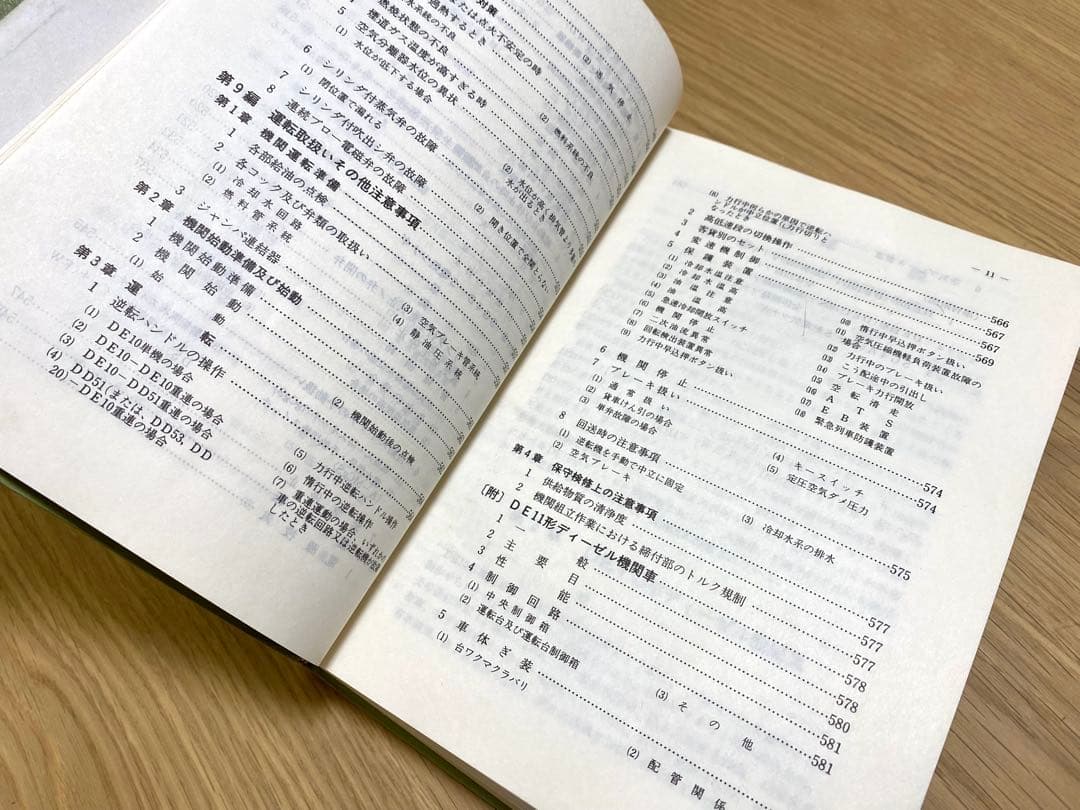 対策
または点火不安定の時
(2) 過気停
水系統の不良
過熱するとき
(2) 燃料系統の不良
燃焼状態の不良
5 煙道ガス温度が高すぎる時
空気分離器水位の異状
水位が低下する場合
(2) 水位が高く、排気管より
水が出るとき
6 シリンダ付蒸気弁の故障
(1) 閉位置で漏れる
(2) 開き位置で全開とならない
7 シリンダ付吹出シ弁の故障
8 連続ブロー電磁弁の故障
第9編 運転取扱いその他注意事項
第1章 機関運転準備
1 各部給油の点検
2 各コック及び弁類の取扱い
(1) 冷却水回路
(3) 空気ブレーキ管系統
(2) 燃料管系統
(4) 静油圧系統
3 ジャンパ連結器
第2章 機関始動準備及び始動
1 機関始動準備
2 機関始動
(1) 始動
(2) 機関始動後の点検
第3章 運転
1 逆転ハンドルの操作
(1) DE10単機の場合
(2) DE10―DE10重連の場合
(3) DE10―DD51重連の場合
(4) DD51(または、DD53、DD
20)―DE10重連の場合
(5) 力行中逆転ハンドル操作
(6) 惰行中の逆転操作
(7) 重連運転の場合、いずれか
車の逆転回路又は逆転機が故障
したとき
― 11 ―
(8) 力行中何らかの原因で逆転ハ
ンドルが中立位置(力行切)と
なったとき
2 高低速段の切換操作……566
3 客貨別のセット……567
4 変速機制御……567
5 保護装置……569
(1) 冷却水温注意
(2) 冷却水温高
(3) 油温注意
(4) 油温高
(5) 急速冷却開放スイッチ
(6) 機関停止
(7) 二次油流異常
(8) 回転検出装置異常
(9) 力行中早込押ボタン扱い
(10) 惰行中早込押ボタン扱い
(11) 空気圧縮機軽負荷装置故障の
場合
(12) 力行中のブレーキ扱い
(13) こう配途中の引出し
(14) ブレーキ力行開放
(15) 空転滑走
(16) ATS
(17) EB装置
(18) 緊急列車防護装置
6 機関停止……574
7 ブレーキ扱い……574
(1) 通常扱い
(2) 貨車けん引の場合
(3) 単弁故障の場合
(4) キースイッチ
(5) 定圧空気ダメ圧力
8 回送時の注意事項……575
(1) 逆転機を手動で中立に固定
(2) 空気ブレーキ
(3) 冷却水系の排水
第4章 保守検修上の注意事項……577
1 供給物質の清浄度……577
2 機関組立作業における締付部のトルク規制……577
〔附〕 DE11形ディーゼル機関車……578
1 一般……578
2 主要目……578
3 性能……580
4 制御回路……581
(1) 中央制御箱
(2) 運転台及び運転台制御箱
(3) その他
5 車体ぎ装……581
(1) 台ワクマクラバリ
(2) 配管関係